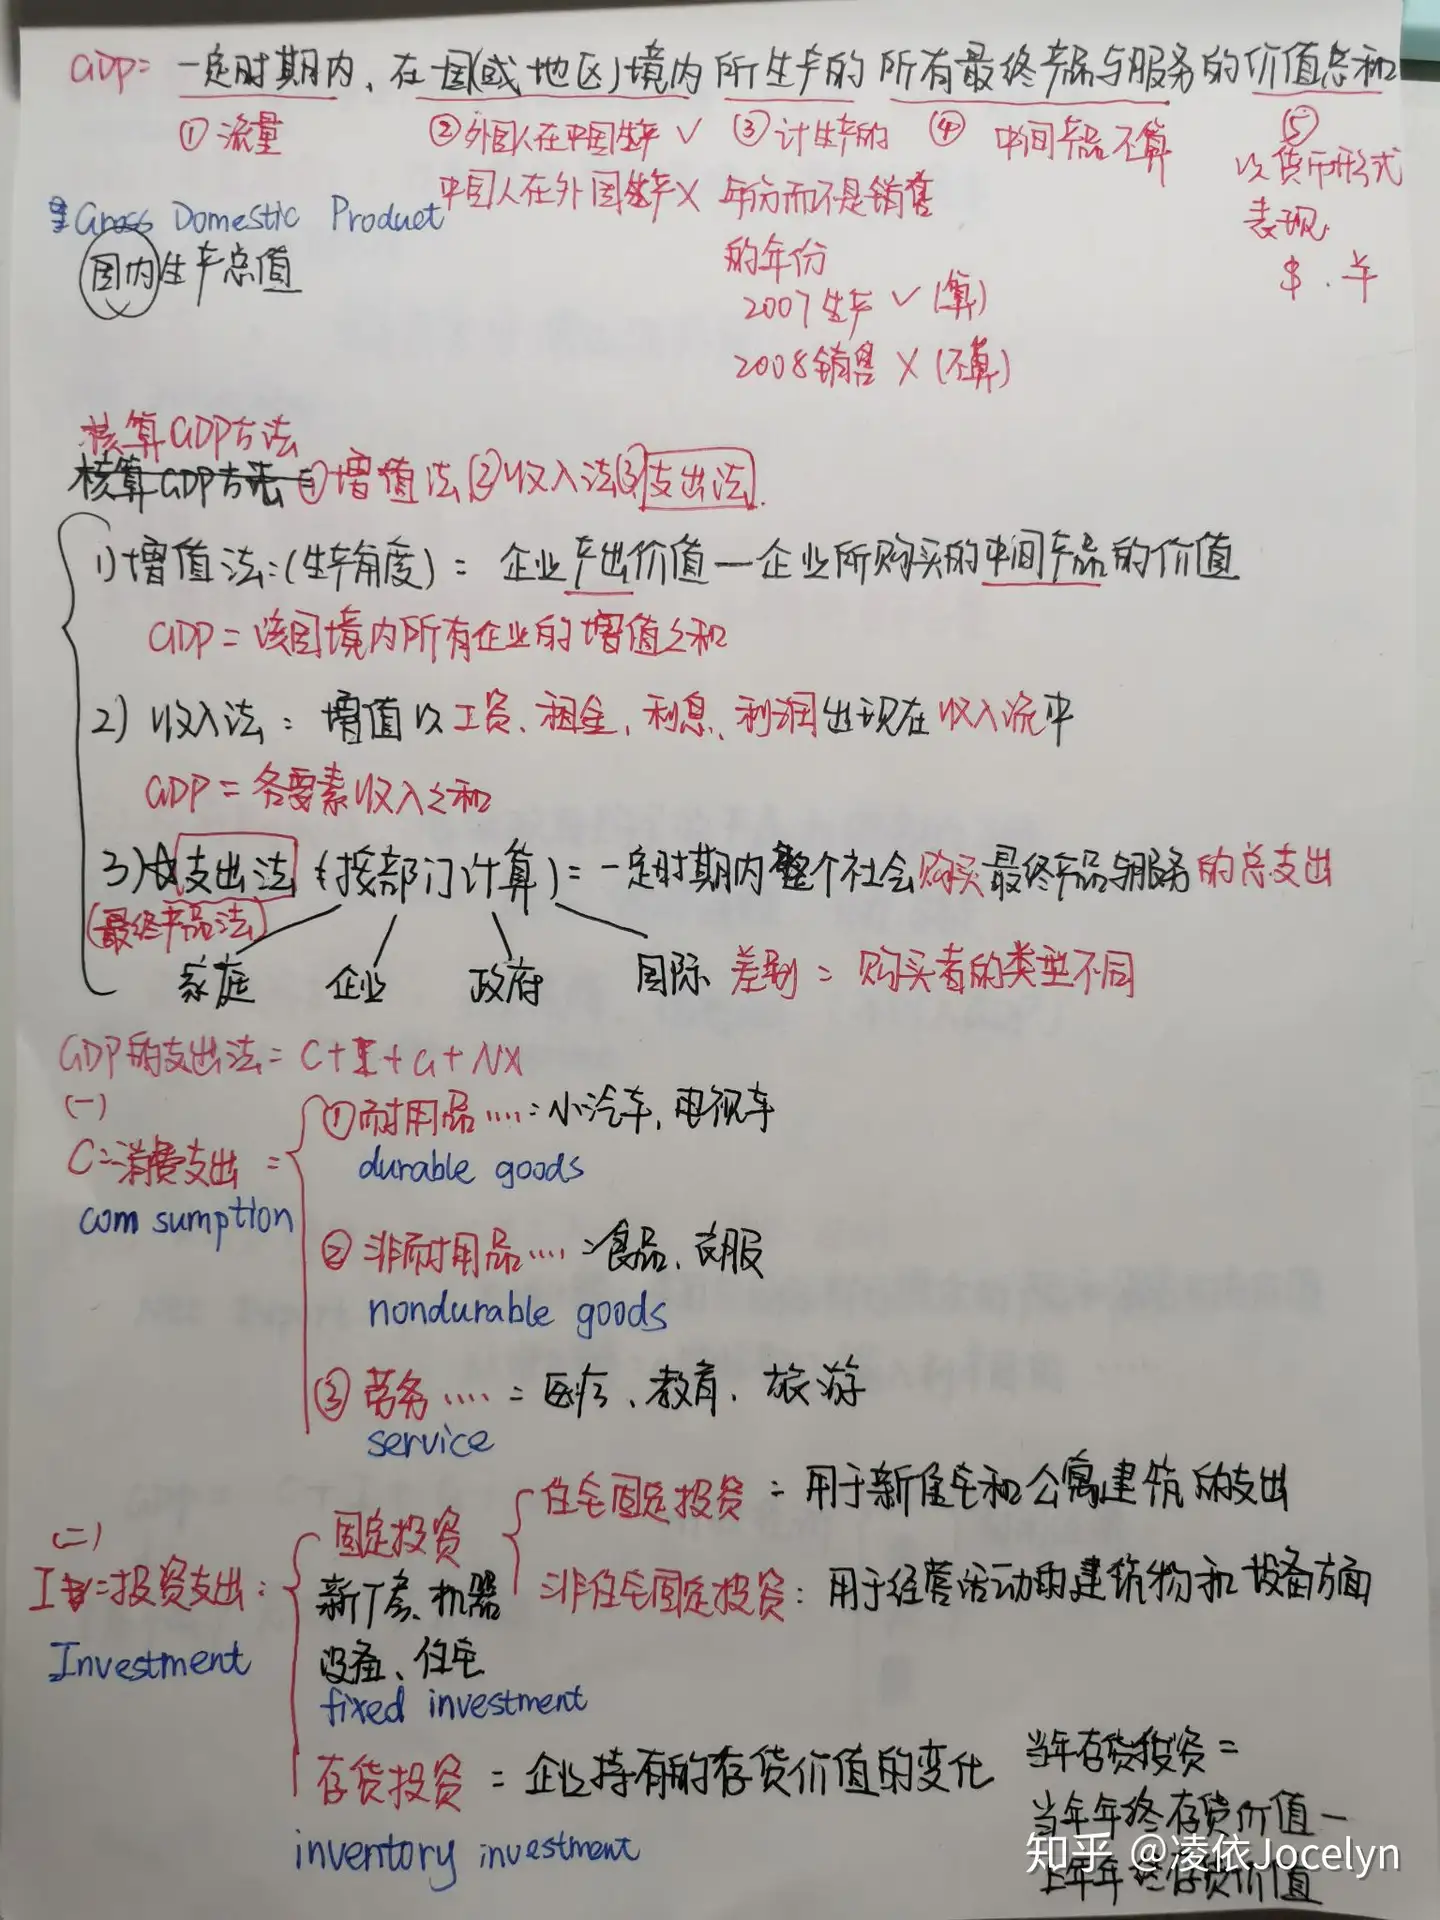 GDP= 一定时期内、在一国(或地区)境内所生产的所有最终产品与服务的价值总和
① 流量
② 外国人在中国生产 ✓
中国人在外国生产 ×
③ 计生产的
年份而不是销售
的年份
2007生产 ✓ (算)
2008销售 × (不算)
④ 中间产品不算
⑤
以货币形式
表现.
$ . 羊
Gross Domestic Product
国内生产总值
核算GDP方法
核算GDP方法= ①增值法②收入法③支出法.
1)增值法:(生产角度) = 企业产出价值—企业所购买的中间产品的价值
GDP = 该国境内所有企业的增值之和
2) 收入法: 增值以工资、租金、利息、利润出现在收入流中
GDP = 各要素收入之和
3)支出法(按部门计算)= 一定时期内整个社会购买最终产品与服务的总支出
(最终产品法)
家庭 企业 政府 国际 差别 = 购买者的类型不同
GDP的支出法= C+I+G+NX
(一)
C=消费支出 =
com sumption
①耐用品 ....: 小汽车, 电视车
durable goods
② 非耐用品....:食品、衣服
nondurable goods
③ 劳务 .... = 医疗、教育、旅游
service
(二)
I=投资支出:
Investment
固定投资
新厂房、机器
设备、住宅
fixed investment
住宅固定投资 = 用于新住宅和公寓建筑的支出
非住宅固定投资: 用于经营活动的建筑物和设备方面
存货投资 = 企业持有的存货价值的变化
inventory investment
当年存货投资 =
当年年终存货价值 —
上年年终存货价值
知乎 @凌依Jocelyn